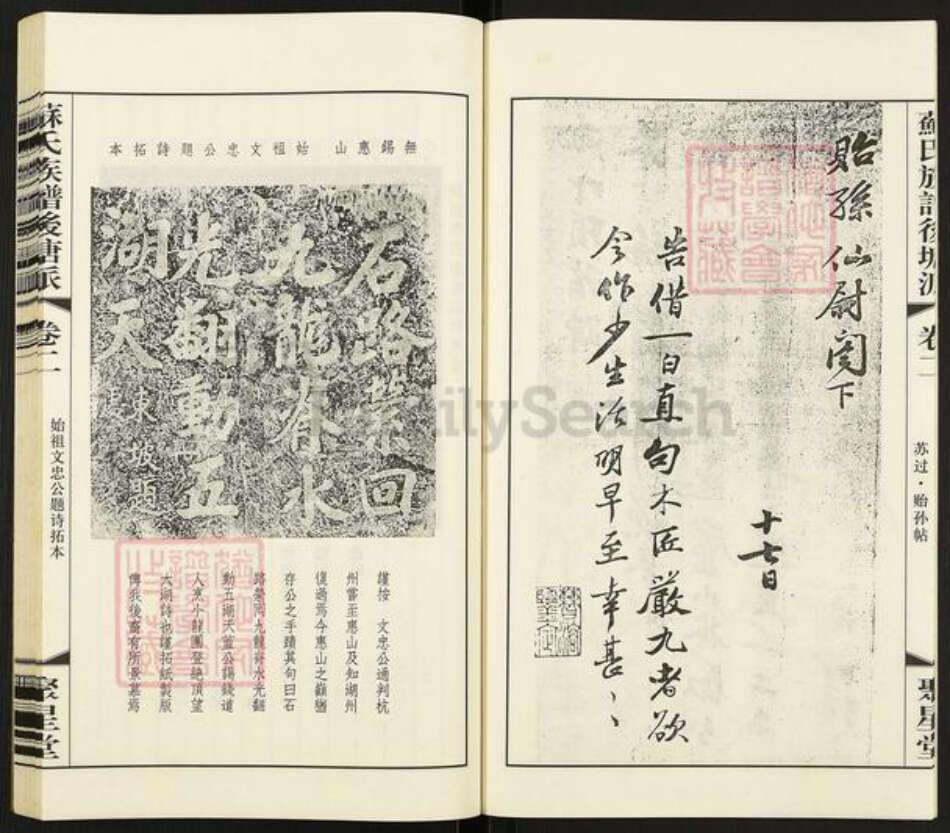 蘇氏族譜後塘派
卷二
苏过·贻孙帖
聚星堂
貽孫仙尉閤下
十七日
告借一白直勾木匠嚴九者欲
令作少生活明早至幸甚、、
無錫惠山 始祖文忠公題詩拓本
石路縈回
九龍脊水
光翻動五
湖天
東坡題
謹按 文忠公通判杭
州嘗至惠山及知湖州
復過焉今惠山之巔猶
存公之手蹟其句曰石
路縈回九龍脊水光翻
動五湖天蓋公錫錢道
人烹小龍團登絕頂望
太湖詩也謹拓紙製版
俾我後裔有所景慕焉
蘇氏族譜後塘派
卷二
始祖文忠公题诗拓本
聚星堂
FamilySearch